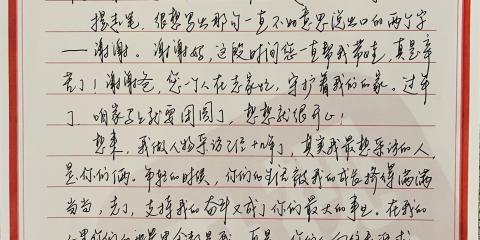 提起笔，很想写出那句一直不好意思说出口的两个字
——谢谢。谢谢妈，这段时间您一直帮我带娃，真是辛
苦了！谢谢爸，您一个人在老家忙，守护着我们的家。过年
了，咱家马上就要团圆了，想想就很开心！
想来，我做人物采访7位十年了，其实我最想采访的人，
是你们俩。年轻的时候，你们的生活被我的成长挤得满满
当当，老了，支持我的奋斗又成了你们最大的事业。在我的